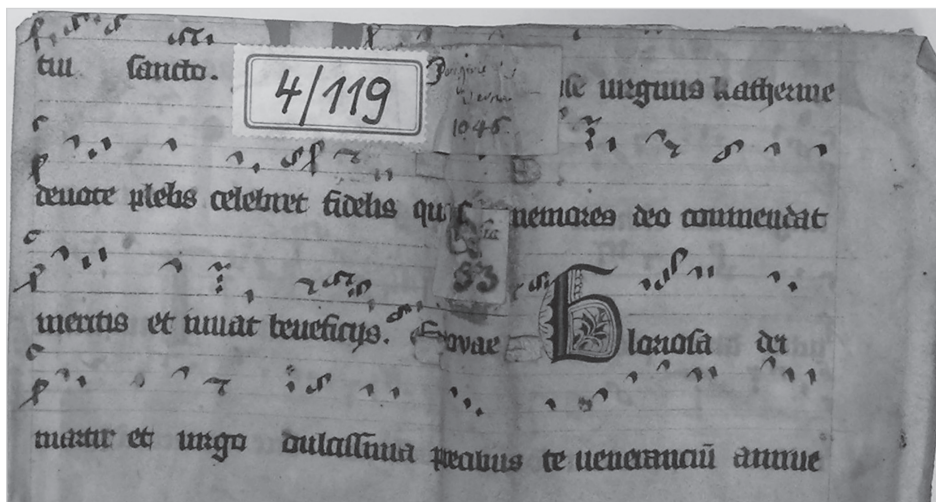 tui sancto. virginis katherine
4/119
1046
devote plebis celebret fidelis memores deo commendat
83
meritis et iuvat beneficijs. Evovae Gloriosa dei
martir et virgo dulcissima precibus te veneranciū annue